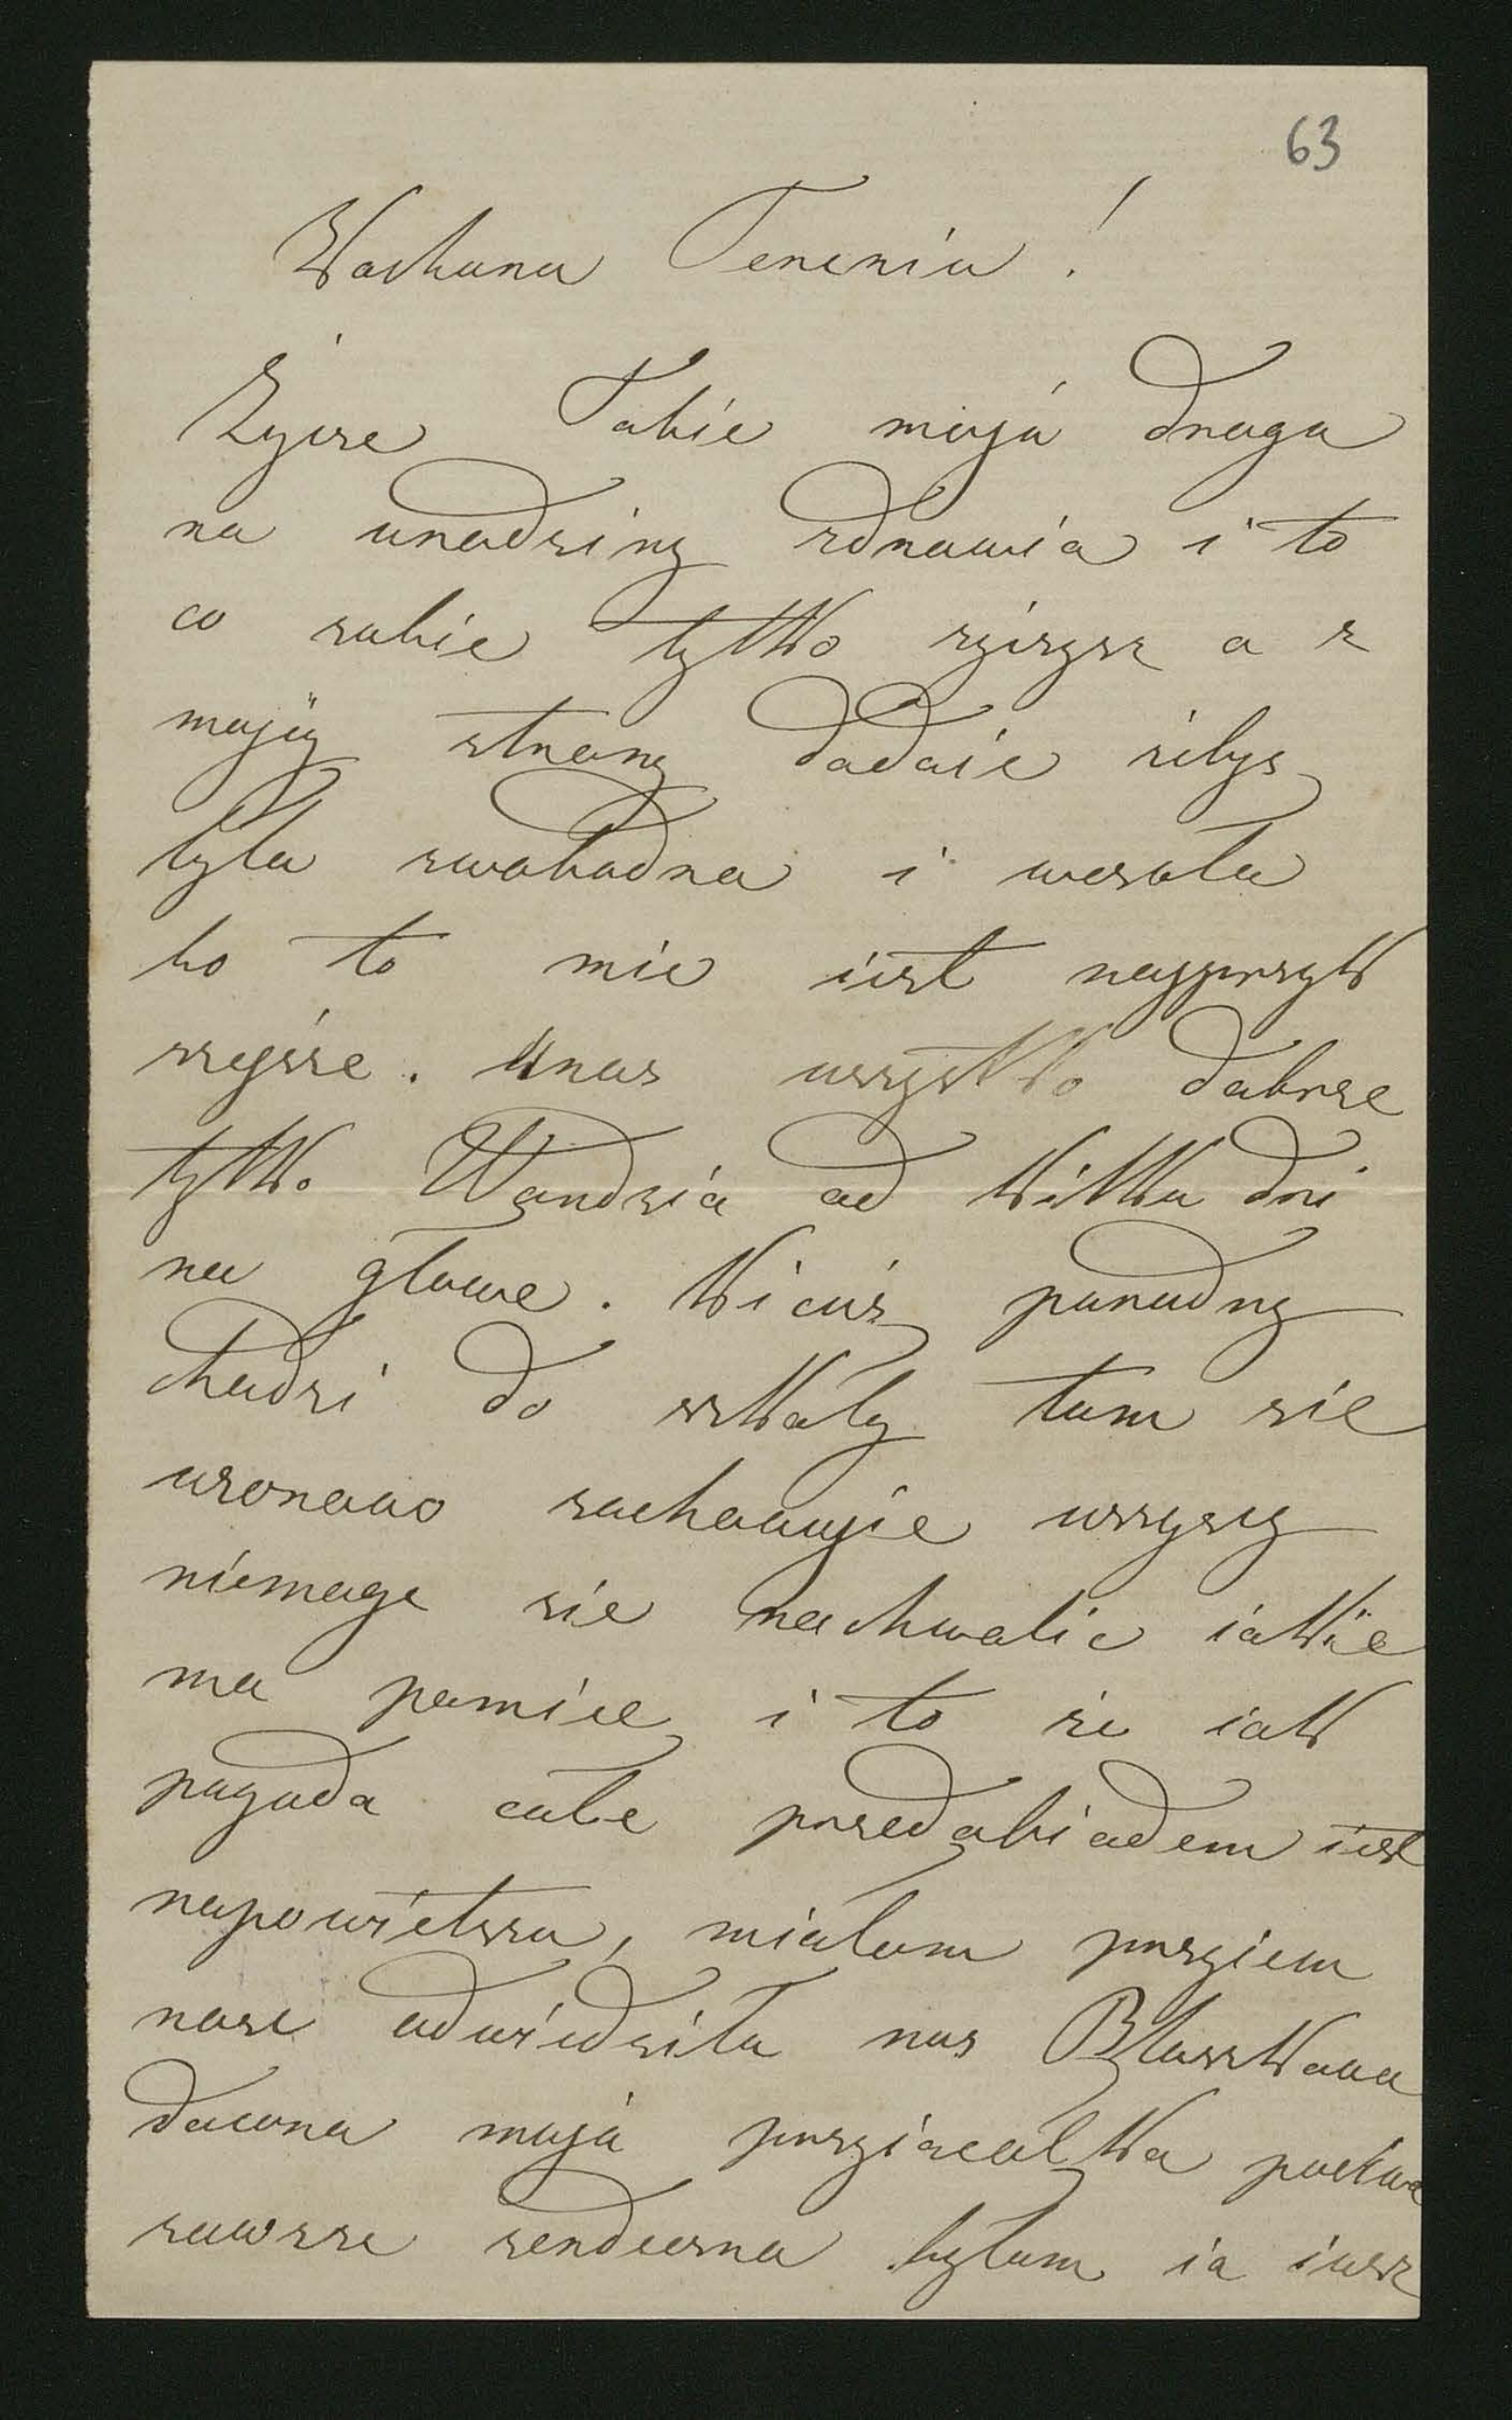 63
Kochana Tereniu!
Życze Tobie moja droga
na urodziny zdrowia i to
co sobie tylko życzysz a z
mojéj strony dodaie żebyś
była swobodna i wesoła
bo to mie iest najprzyk
rzejsze. Unas wszystko dobrze
tylko Wandzia od kilku dni
na głowe. Kicuś poradny
chodzi do szkoły tam sie
wzorowo zachowuje wszyscy
niemoge sie nachwalic iakie
ma pamiec i to że iak
pogoda cało przedobiadem iest
napowietrzu, miałam przyiem
nosc odwiedziła nas Błeszkowa
dawna moja przyiaciołka poctiwa
zawsze serdeczna byłam ia iusz